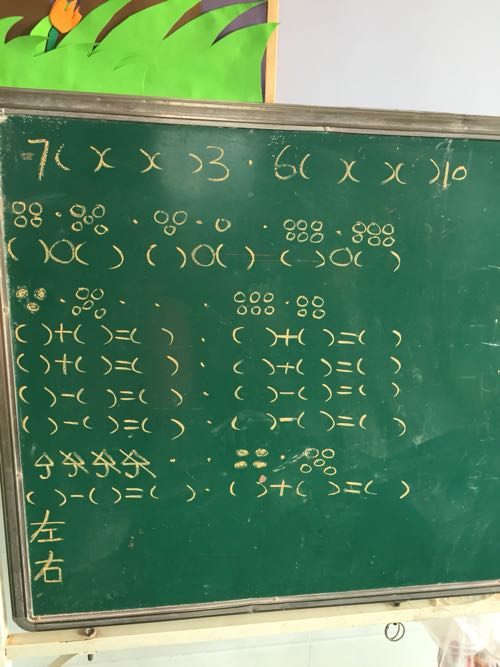 7( )( )( )3 · 6( )( )( )10
( )○( ) ( )○( ) ( )○( )
( )+( )=( ) · ( )+( )=( )
( )+( )=( ) · ( )+( )=( )
( )-( )=( ) · ( )-( )=( )
( )-( )=( ) · ( )-( )=( )
( )-( )=( ) · ( )+( )=( )
左
右